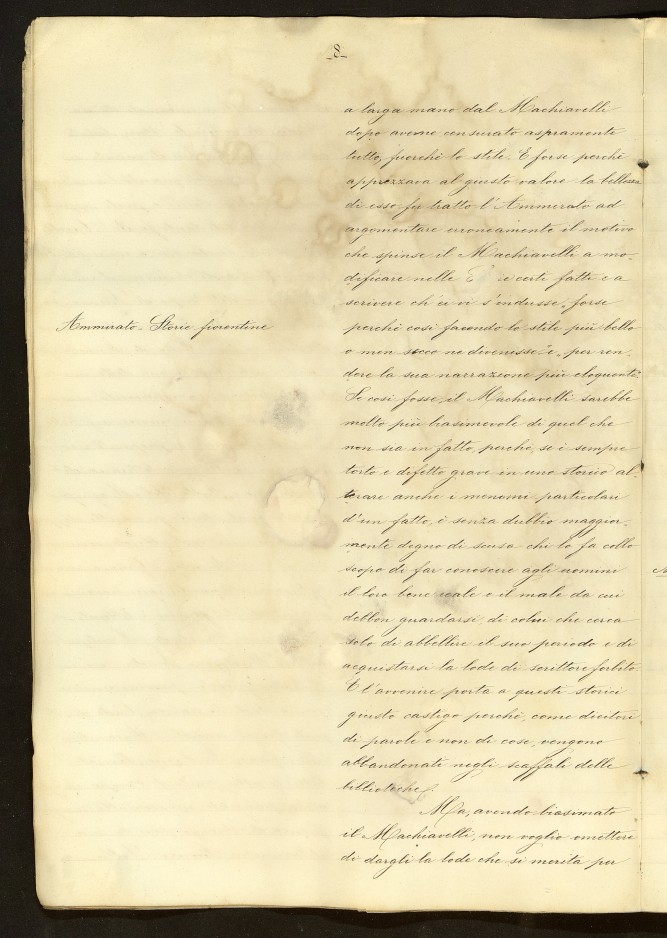 -8-
a larga mano dal Machiavelli
dopo averne censurato aspramente
tutto, fuorchè lo stile. E forse perchè
apprezzava al giusto valore la bellezza
di esso fu tratto l'Ammirato ad
argomentare erroneamente il motivo
che spinse il Machiavelli a mo-
dificare nelle certi fatti e a
scrivere ch'ei vi s'indusse "forse
perchè così facendo lo stile più bello
o men secco ne divenisse" e "per ren-
dere la sua narrazione più eloquente".
Se così fosse, il Machiavelli sarebbe
molto più biasimevole di quel che
non sia in fatto, perchè, se è sempre
torto e difetto grave in uno storico al-
terare anche i menomi particolari
d'un fatto, è senza dubbio maggior-
mente degno di scusa chi lo fa collo
scopo di far conoscere agli uomini
il loro bene reale e il male da cui
debbon guardarsi, di colui che cerca
solo di abbellire il suo periodo e di
acquistarsi la lode di scrittore forbito.
E l'avvenire porta a questi storici
giusto castigo perchè, come dicitori
di parole e non di cose, vengono
abbandonati negli scaffali delle
biblioteche.
Ma, avendo biasimato
il Machiavelli, non voglio omettere
di dargli la lode che si merita per
Ammirato - Storie fiorentine